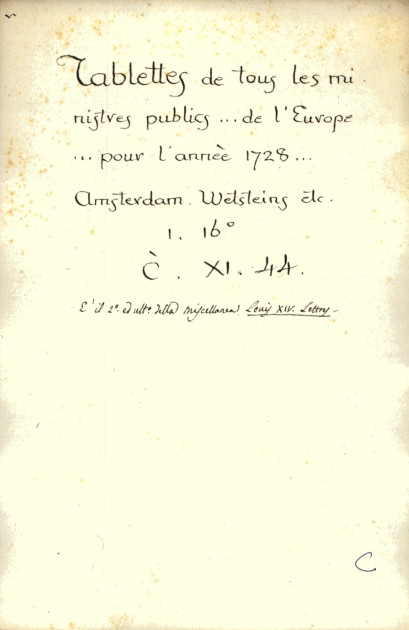 Tablettes de tous les mi-
nistres publics ... de l'Europe
... pour l'année 1728 ...
Amsterdam. Wetsteins etc.
1. 16°
C. XI. 44.
E' il 2° ed ult° della miscellanea Louis XIV. Lettres -
C